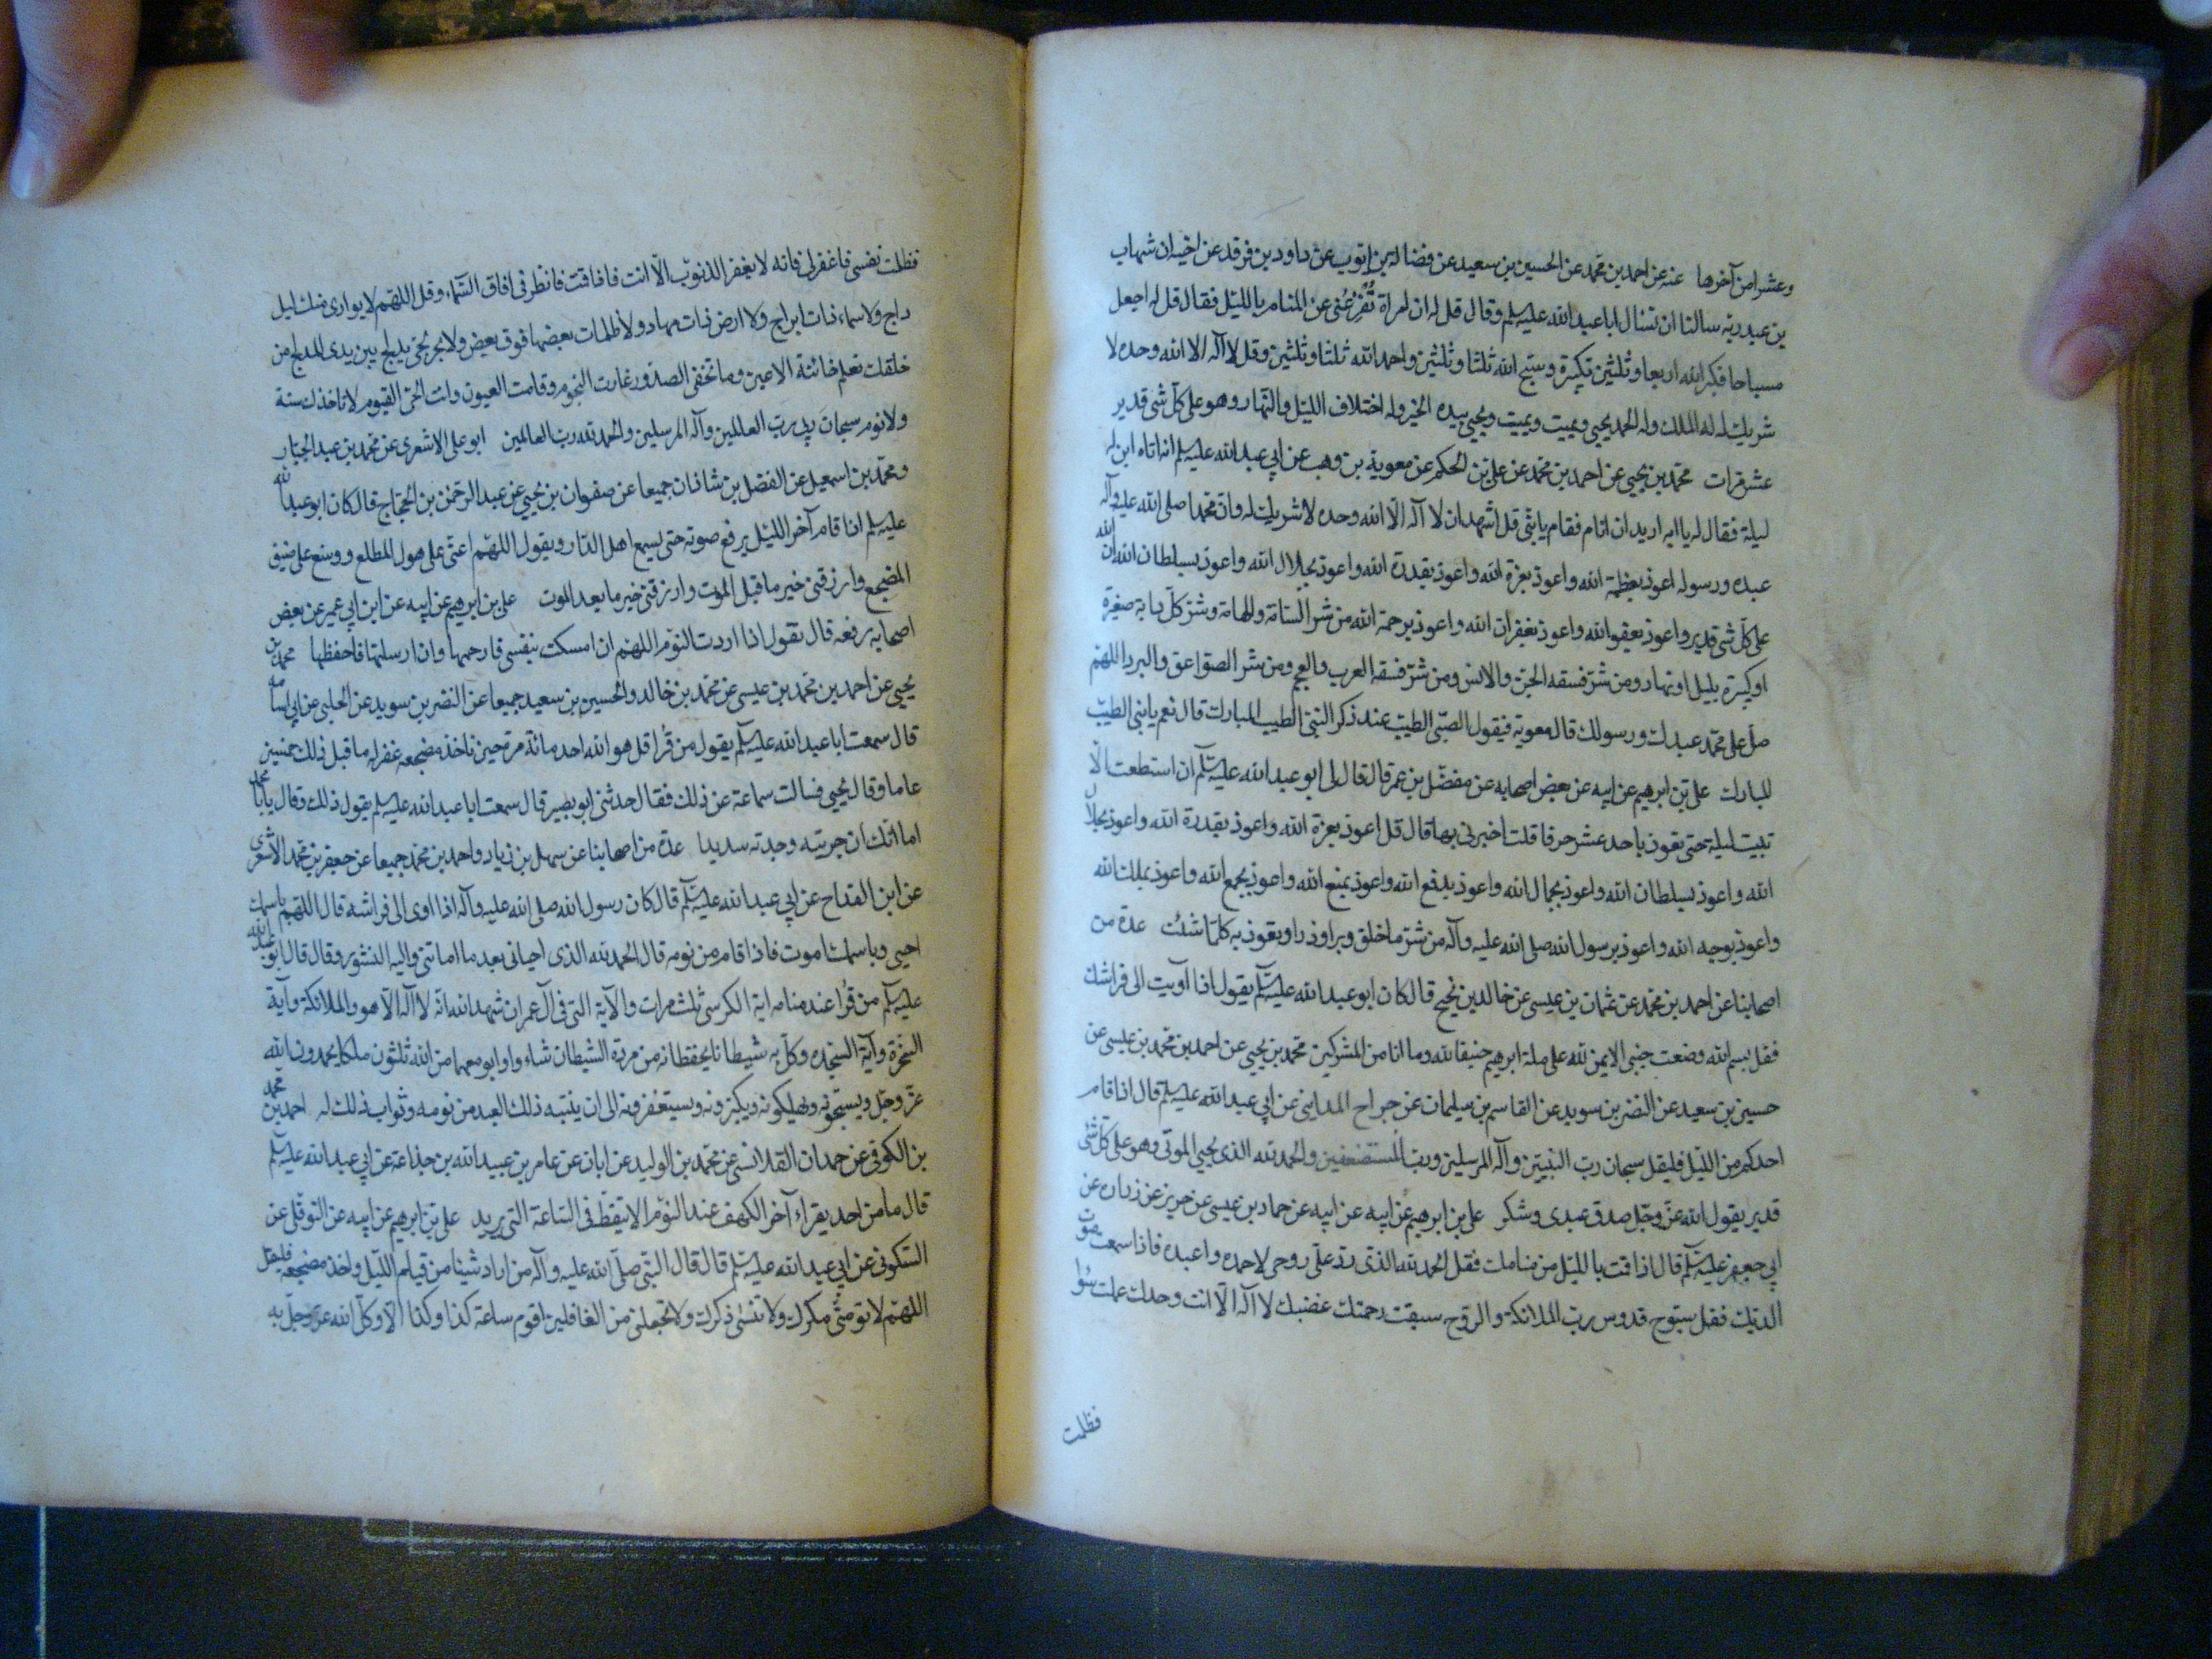 وعشرا من آخرها عنه عن احمد بن محمد عن الحسين بن سعيد عن فضالة بن ايوب عن داود بن فرقد عن اخيه ان شهاب
بن عبد ربه سالنا ان نسال ابا عبد الله عليه السلم وقال قل له ان امراة تُفْزِعُنى عن المنام بالليل فقال قل له اجعل
مسباحا فكبر الله اربعا وثلثين تكبيرة وسبح الله ثلثا وثلثين واحمد الله ثلثا وثلثين وقل لا آله الا الله وحده لا
شريك له له الملك وله الحمد يحيى ويميت ويميت ويحيى بيده الخير وله اختلاف الليل والنهار وهو على كل شى قدير
عشر مرات محمد بن يحيى عن احمد بن محمد عن على بن الحكم عن معوية بن وهب عن ابى عبد الله عليه السلم انه اتاه ابن له
ليلة فقال له يا ابه اريد ان انام فقام يا بنى قل اشهد ان لا آله الا الله وحده لا شريك له وان محمدا صلى الله عليه وآله
عبده ورسوله اعوذ بعظمة الله واعوذ بعزة الله واعوذ بقدرة الله واعوذ بجلال الله واعوذ بسلطان الله ان الله
على كل شى قدير واعوذ بعفو الله واعوذ بغفران الله واعوذ برحمة الله من شر السامة والهامة وشر كل دابة صغيرة
او كبيرة بليل او نهار ومن شر فسقه الجن والانس ومن شر فسقه العرب والعجم ومن شر الصواعق والبرد اللهم
صل على محمد عبدك ورسولك قال معوية فيقول الصبى الطيب عند ذكر النبى الطيب المبارك قال نعم يا بنى الطيب
المبارك على بن ابرهيم عن ابيه عن بعض اصحابه عن مفضل بن عمر قال قال لى ابو عبد الله عليه السلم ان استطعت الّا
تبيت ليلة حتى تعوذ باحد عشر حرفا قلت اخبرنى بها قال قل اعوذ بعزة الله واعوذ بقدرة الله واعوذ بجلال
الله واعوذ بسلطان الله واعوذ بجمال الله واعوذ بدفع الله واعوذ بمنع الله واعوذ بجمع الله واعوذ بملك الله
واعوذ بوجه الله واعوذ برسول الله صلى الله عليه وآله من شر ما خلق وبرا وذرا وتعوذ به كلما شئت عدة من
اصحابنا عن احمد بن محمد عن عثمان بن عيسى عن خالد بن نجيح قال كان ابو عبد الله عليه السلم يقول اذا آويت الى فراشك
فقل بسم الله وضعت جنبى الايمن لله على ملة ابرهيم حنيفا لله وما انا من المشركين محمد بن يحيى عن احمد بن محمد بن عيسى عن
حسين بن سعيد عن النضر بن سويد عن القاسم بن سليمان عن جراح المداينى عن ابى عبد الله عليه السلم قال اذا قام
احدكم من الليل فليقل سبحان رب النبيين وآله المرسلين ورب المستضعفين والحمد لله الذى يحيى الموتى وهو على كل شى
قدير يقول الله عز وجل صدق عبدى وشكر على بن ابرهيم عن ابيه عن ابيه عن حماد بن عيسى عن حريز عن زراره عن
ابى جعفر عليه السلم قال اذا قمت بالليل من منامك فقل الحمد لله الذى رد على روحى لاحمده واعبده فاذا سمعت صوت
الديك فقل سبوح قدوس رب الملائكة والروح سبقت رحمتك غضبك لا آله الا انت وحدك عملت سوا
فظلمت
فظلمت نفسى فاغفر لى فانه لا يغفر الذنوب الا انت فاذا قمت فانظر فى افاق السماء وقل اللهم لا يوارى منك ليل
داج ولا سماء ذات ابراج ولا ارض ذات مهاد ولا ظلمات بعضها فوق بعض ولا بحر لجى يدلج بين يدى المدلج من
خلقك تعلم خائنة الاعين وما تخفى الصدور غارت النجوم وقامت العيون وانت الحى القيوم لا تاخذك سنة
ولا نوم سبحان رب العالمين وآله المرسلين والحمد لله رب العالمين ابو على الاشعرى عن محمد بن عبد الجبار
ومحمد بن اسمعيل عن الفضل بن شاذان جميعا عن صفوان بن يحيى عن عبد الرحمن بن الحجاج قال كان ابو عبد الله
عليه السلم اذا قام آخر الليل يرفع صوته حتى يسمع اهل الدار ويقول اللهم اعنى على هول المطلع ووسع على ضيق
المضجع وارزقنى خير ما قبل الموت وارزقنى خير ما بعد الموت على بن ابرهيم عن ابيه عن ابن ابى عمير عن بعض
اصحابه رفعه قال تقول اذا اردت النوم اللهم ان امسكت بنفسى فارحمها وان ارسلتها فاحفظها محمد بن
يحيى عن احمد بن محمد بن عيسى عن محمد بن خالد والحسين بن سعيد جميعا عن النضر بن سويد عن الحلبى عن ابى اسامه
قال سمعت ابا عبد الله عليه السلم يقول من قرا قل هو الله احد مائة مرة حين ياخذ مضجعه غفر له ما قبل ذلك خمسين
عاما وقال يحيى فسالت سماعة عن ذلك فقال حدثنى ابو بصير قال سمعت ابا عبد الله عليه السلم يقول ذلك وقال يا با محمد
اما انك ان جربته وجدته سديدا عدة من اصحابنا عن سهل بن زياد واحمد بن محمد جميعا عن جعفر بن محمد الاشعرى
عن ابن القداح عن ابى عبد الله عليه السلم قال كان رسول الله صلى الله عليه وآله اذا اوى الى فراشه قال اللهم باسمك
احيى وباسمك اموت فاذا قام من نومه قال الحمد لله الذى احيانى بعد ما اماتنى واليه النشور وقال قال ابو عبد الله
عليه السلم من قرا عند منامه اية الكرسى ثلث مرات والآية التى فى آل عمران شهد الله انه لا آله الا هو والملائكة وآية
السخرة وآية السجده وكل به شيطانا يحفظانه من مردة الشيطان شاءوا او ابو معهما من الله ثلثون ملكا يحمدون الله
عز وجل ويسبحونه ويهللونه ويكبرونه ويستغفرونه الى ان ينتبه ذلك العبد من نومه وثواب ذلك له احمد بن محمد
بن الكوفى عن حمدان القلانسى عن محمد بن الوليد عن ابان عن عامر بن عبيد الله بن جذاعة عن ابى عبد الله عليه السلم
قال ما من احد يقراء آخر الكهف عند النوم الا تيقظ فى الساعة التى يريد على بن ابرهيم عن ابيه عن النوفلى عن
السكونى عن ابى عبد الله عليه السلم قال قال النبى صلى الله عليه وآله من اراد شيئا من قيام الليل واخذ مضجعه فليقل
اللهم لا تومنى مكرك ولا تنسنى ذكرك ولا تجعلنى من الغافلين اقوم ساعة كذا وكذا الا وكل الله عز وجل به